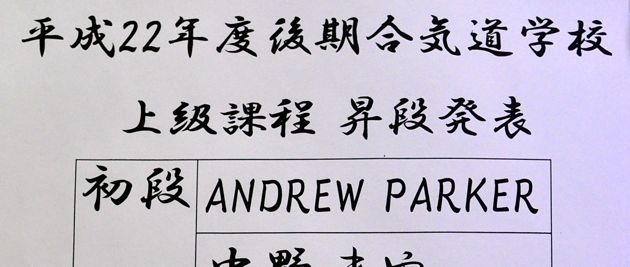 平成22年度後期合気道学校
上級課程 昇段発表
初段 ANDREW PARKER
中野